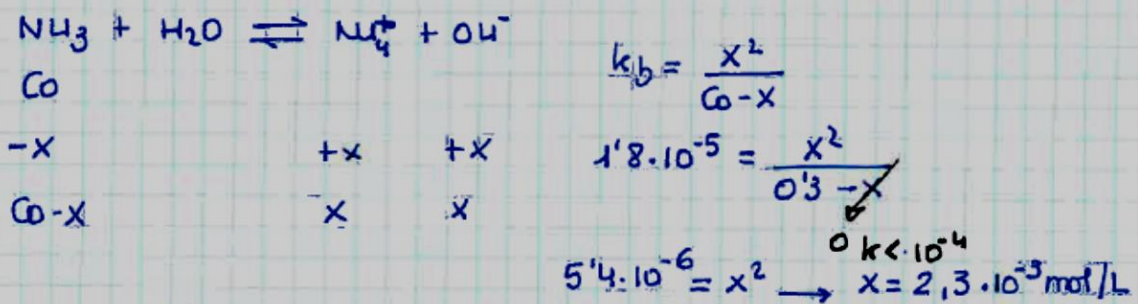 NH3 + H2O ⇌ NH4+ + OH-
Co
-x +x +x
Co-x x x
kb = x²/(Co-x)
1'8·10⁻⁵ = x²/(0'3-x)
0 k<·10⁻⁴
5'4·10⁻⁶ = x² → x = 2,3·10⁻³ mol/L